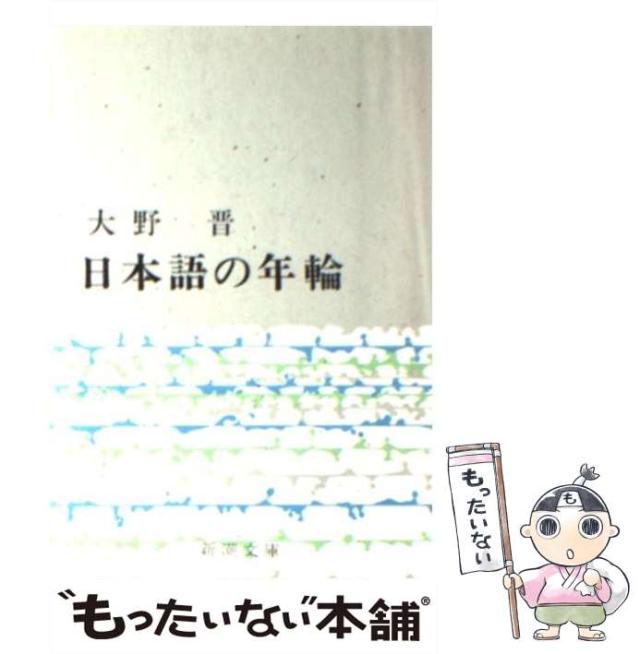 大野 晋
日本語の年輪
新潮文庫
"もったいない"本舗®
もったいない
も